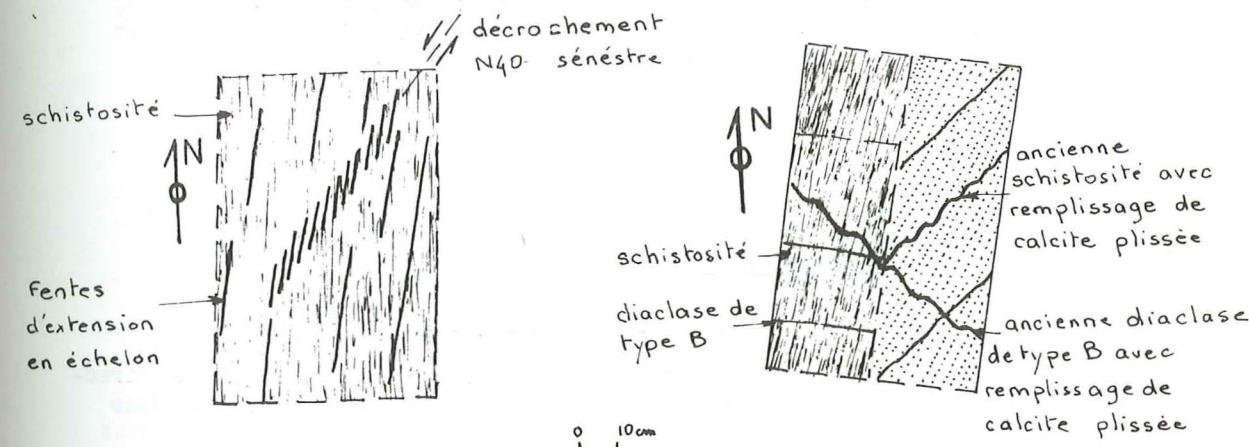 décrochement
N40 sénéstre
schistosité
N
Fentes
d'extension
en échelon
N
schistosité
diaclase de
type B
ancienne
schistosité avec
remplissage de
calcite plissée
ancienne diaclase
de type B avec
remplissage de
calcite plissée
0 10cm